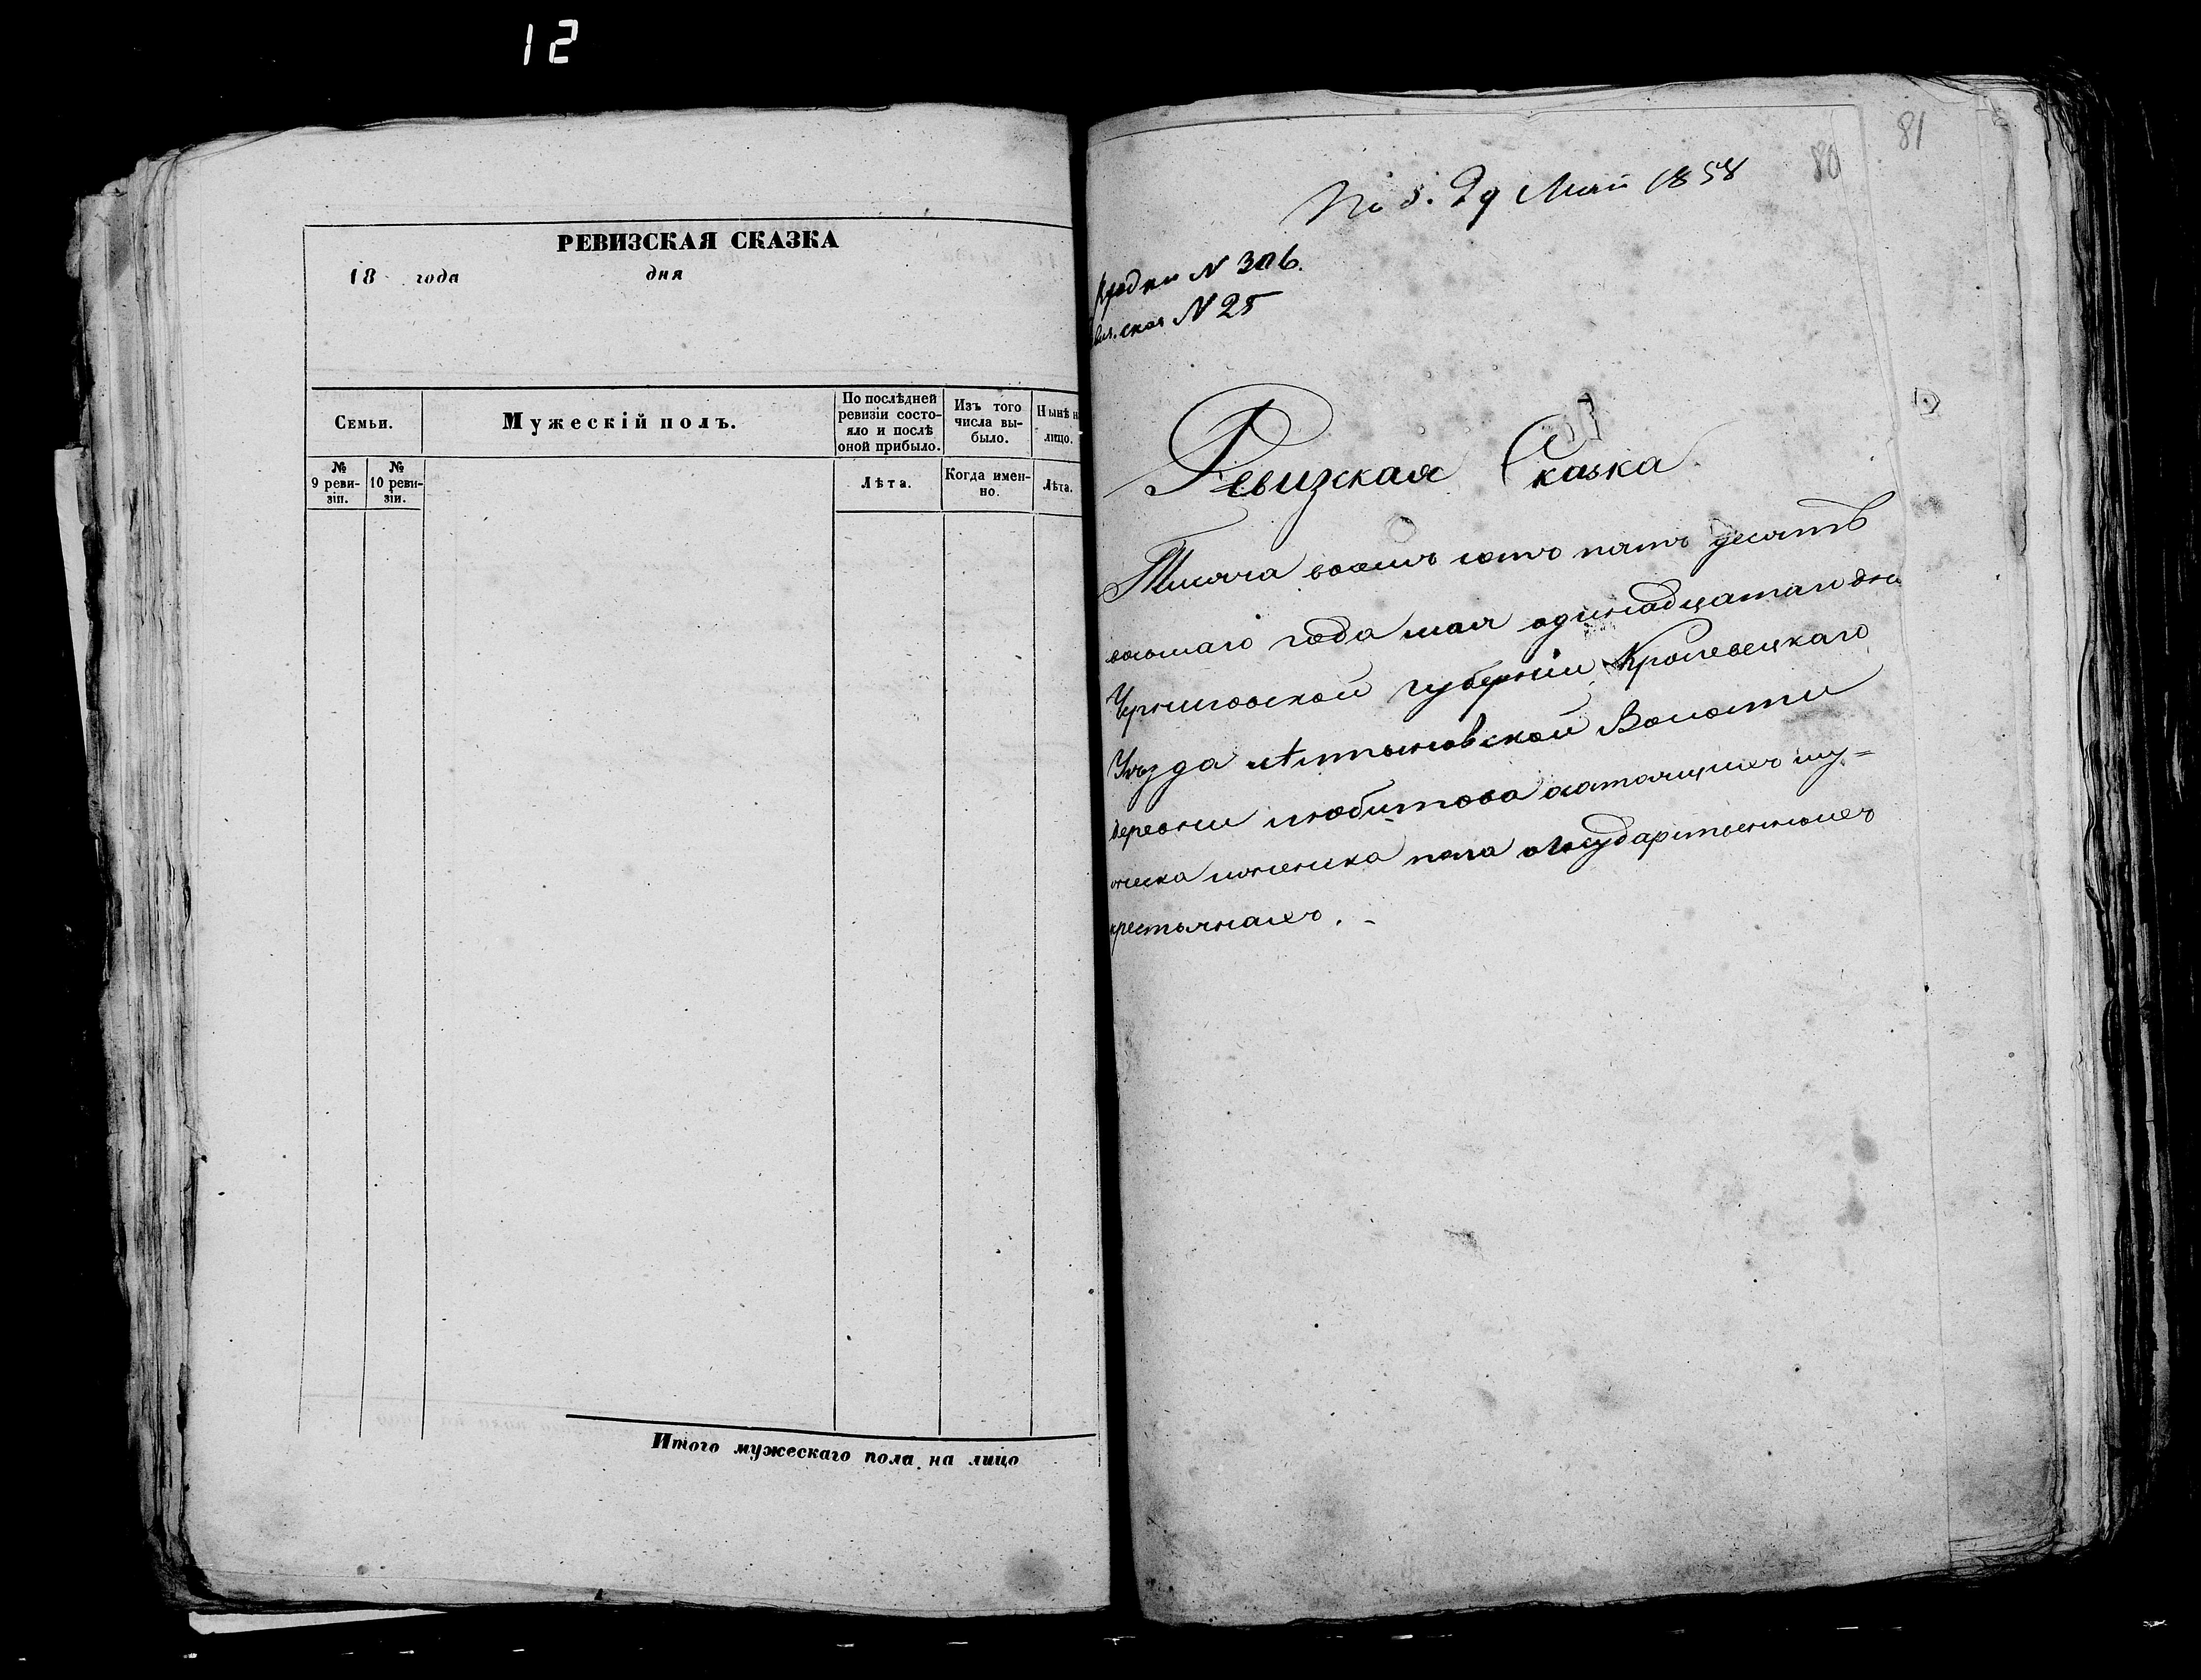 12
РЕВИЗСКАЯ СКАЗКА
18 года дня
Семьи.
Мужескій полъ.
По послѣдней ревизіи состояло и послѣ оной прибыло.
Изъ того числа выбыло.
Нынѣ н
лицо.
№ 9 ревизіи.
№ 10 ревизіи.
Лѣта.
Когда именно.
Лѣта.
Итого мужескаго пола на лицо
81
80
29 Маи 1858
N 306.
N 25
Ревизкая Сказка
Тисяча восемъ сотъ пятъ десятъ
восмаго года мая одинадцатаго дня
Черниговской губерніи Кролевецкаго
Уѣзда Алтыновской Волости
деревни Любитова состоящихъ му=
жеска и женска пола о Государственныхъ
крестьянахъ. -